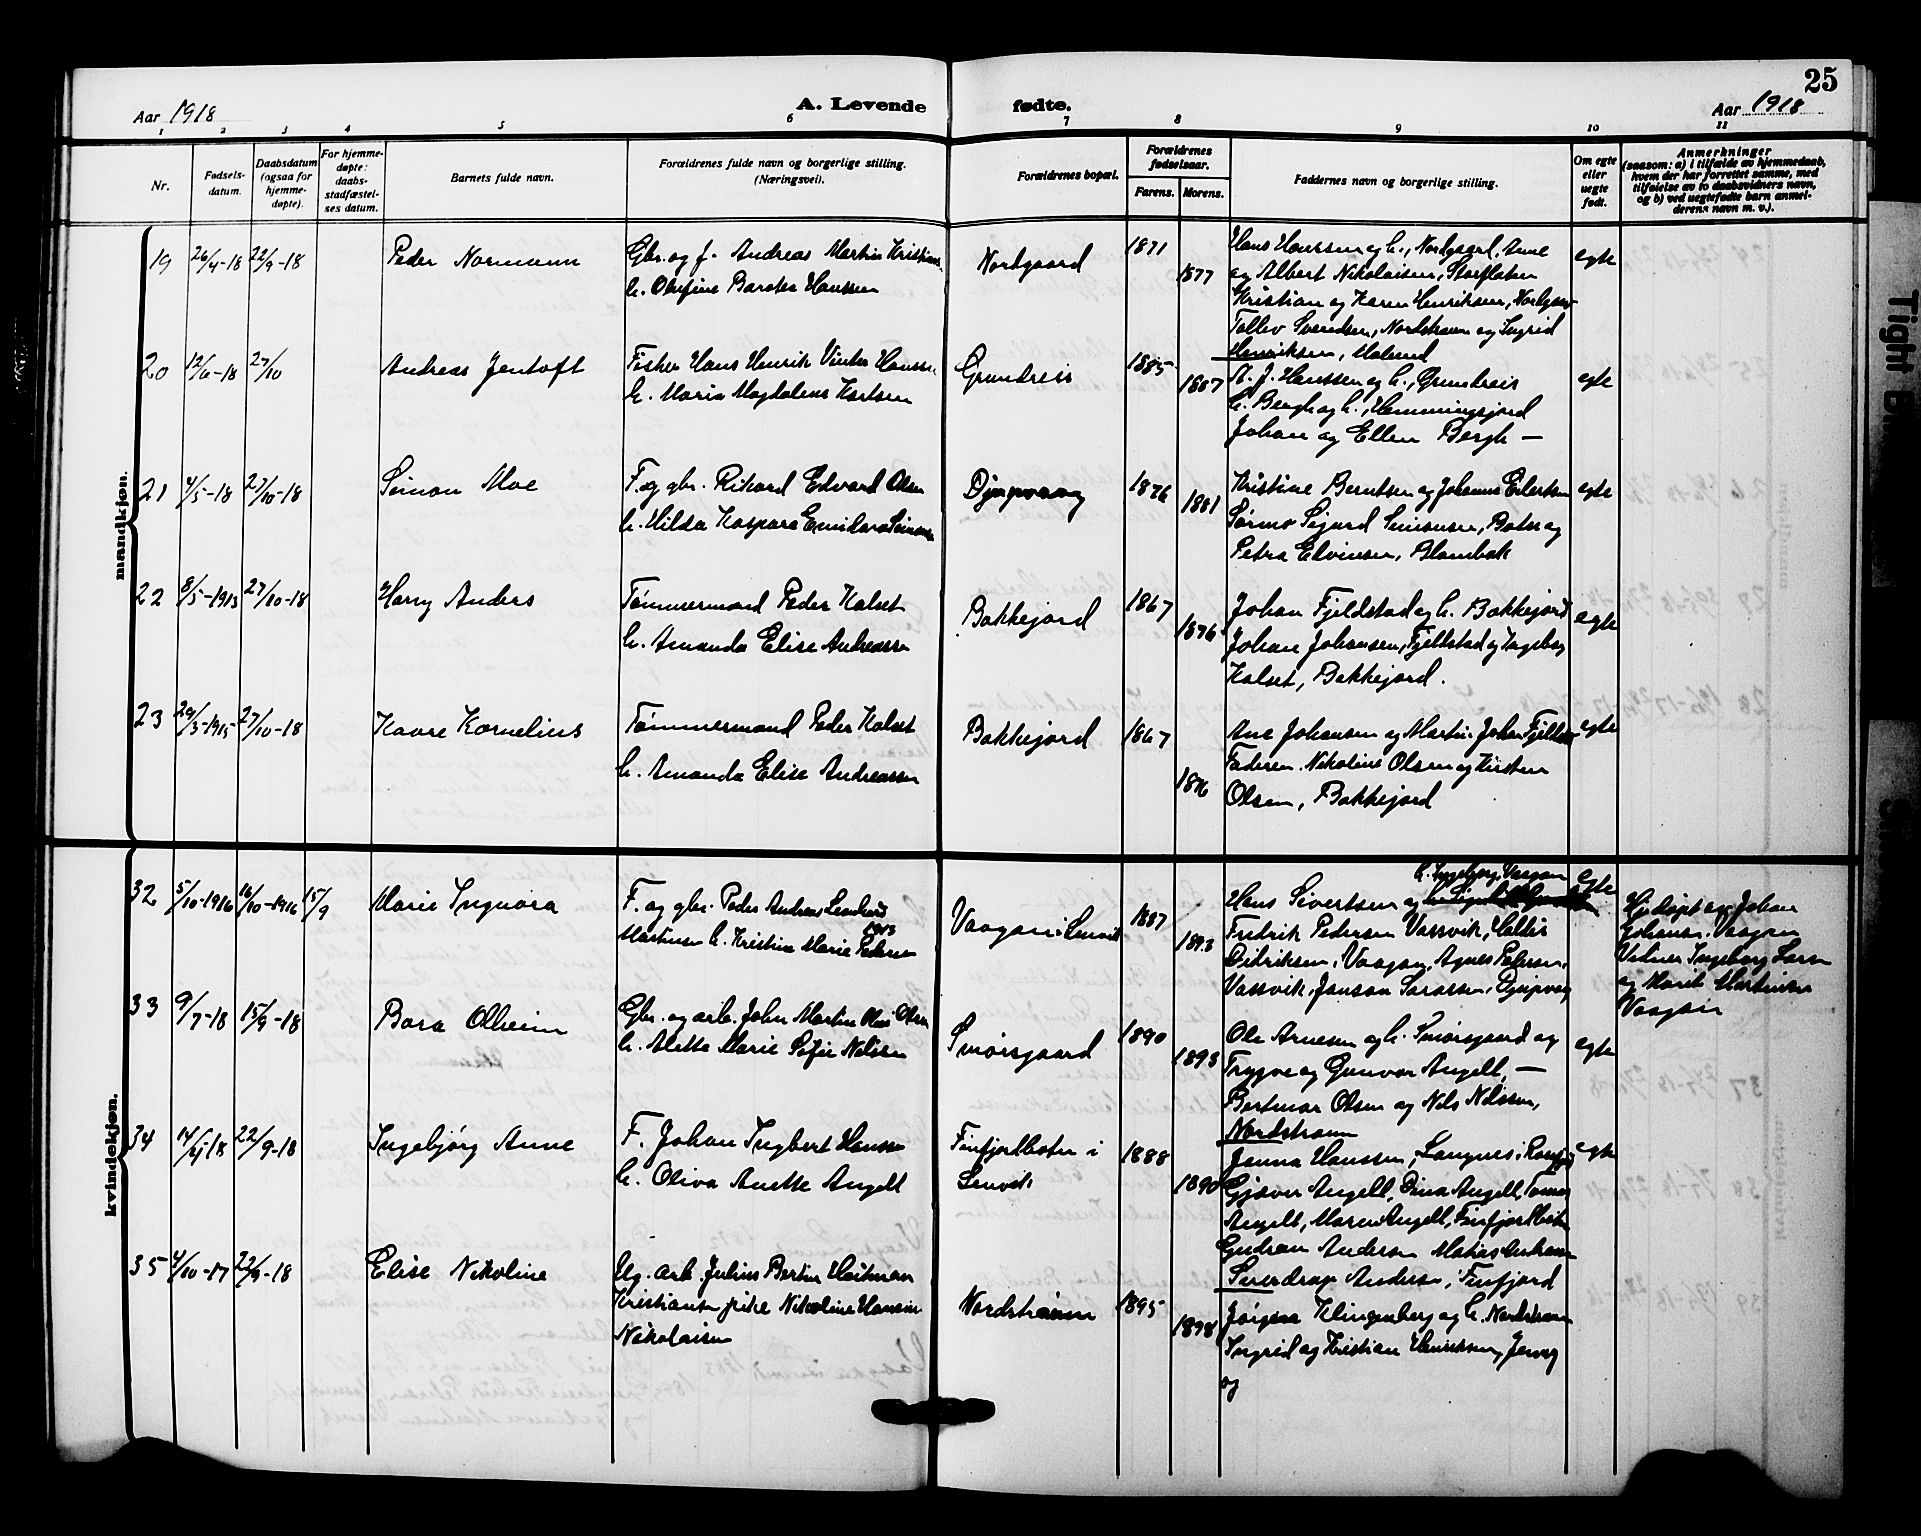 25
Aar 1918 A. Levende fødte. Aar 1918
1 2 3 4 5 6 7 8 9 10 11
Nr.
Fødsels-
datum.
Daabsdatum
(ogsaa for
hjemme-
døpte).
For hjemme-
døpte:
daabs-
stadfæstel-
ses datum.
Barnets fulde navn.
Forældrenes fulde navn og borgerlige stilling.
(Næringsvei).
Forældrenes bopæl.
Forældrenes
fødselsaar.
Farens. Morens.
Faddernes navn og borgerlige stilling.
Om egte
eller
uegte
født.
Anmerkninger
(saasom: a) i tilfælde av hjemmedaab,
hvem der har forrettet samme, med
tilføielse av to daabsvidners navn,
og b) ved uegtefødte barn anmel-
derens navn m. v.).
mandkjøn.
19 26/4-18 22/9-18 Peder Normann
Gbr. og f. Andreas Martin
h. Olufine Hanssen
Nordgaard 1871 1877
Hans Hanssen og h., Nordgaard, Anne
og Albert Nikolaisen, Storflaten
Kristian og Karen Henriksen,
Tollev Svendsen, Nordstraum og Ingrid
Henriksen,
egte
20 12/6-18 27/10 Andreas Jentoft
Fisker Hans Henrik Vinter
h. Maria Magdalena
Grundreis 1885 1887
A. J. Hanssen og h., Grundreis
h. Bergh og h., Hemmingsjord
Johan og Ellen Bergh —
egte
21 4/5-18 27/10-18 Simon Moe
F. og gbr. Rikard Edvard Olsen
h. Hilda Kaspara
Djupvaag 1876 1881
Kristine Berntsen og Johannes
Sørmo Sigurd Simonsen, Botn og
Petra Edvinsen, Blombak
egte
22 8/5-1913 27/10-18 Harry Anders
Tømmermand Peder Kalset
h. Amanda Elise Andreassen
Bakkejord 1867 1876
Johan Fjeldstad og h. Bakkejord
Johan Johansen, Fjeldstad og Ingeborg
Kalset, Bakkejord.
egte
23 29/3-1915 27/10-18 Kaare Kornelius
Tømmermand Peder Kalset
h. Amanda Elise Andreassen
Bakkejord 1867 1876
Ane Johansen og Martin Johan
Faderen. Nikoline Olsen og Kirsten
Olsen, Bakkejord
egte
kvindekjøn.
32 5/10-1916 16/10-1916 15/9 Marie Ingvora
F. og gbr. Peder Andreas
1913
Martinsen h. Kristine Marie Pedersen
Vaagan i Lenvik 1887 1893
h. Ingeborg, Vaagan
Hans Sivertsen og
Fredrik Pedersen Vassvik,
Didriksen, Vaagan, Agnes Pedersen,
Vassvik,
egte
Hjdøpt av Johan
Johansen, Vaagan
Vidner Ingeborg
og Marit Martinsen
Vaagan
33 9/7-18 15/9-18 Bara
Gbr. og arb. John Martin
h. Aletta Marie Sofie Nilssen
Smørsgaard 1890 1893
Ole Arnesen og h. Smørsgaard og
Trygve og Gunvor Angell, —
Bertmar Olsen og Nils Nilssen,
Nordstraum
egte
34 22/9-18 Ingebjørg Anne
F. Johan Ingbert Hanssen
h. Oliva Anette Angell
Finfjordbotn i
Lenvik
1888 1890
Janna Hanssen, Langnes i
Gjæver Angell, Dina Angell,
Angell, Maren Angell, Finfjordbotn
Gudrun Andersen
Andersen, Finfjord
egte
35 4/10-17 22/9-18 Elise Nikoline
Ug. arb. Julius Bertin Heitman
Kristiansen pike Nikoline
Nikolaisen
Nordstraum 1895 1898
Jørgen Klingenberg og h. Nordstraum
Ingrid og Kristian Henriksen,
og
Tight